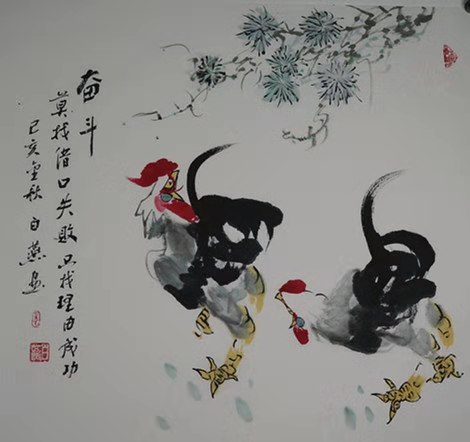 奋斗
莫找借口失败只找理由成功
己亥金秋白燕画